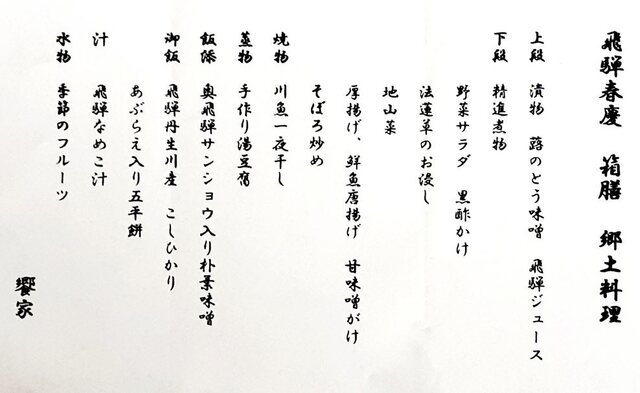 飛騨春慶 箱膳 郷土料理
上段 漬物 蕗のとう味噌 飛騨ジュース
下段 精進煮物
野菜サラダ 黒酢かけ
法蓮草のお浸し
地山菜
厚揚げ、鮮魚唐揚げ 甘味噌がけ
そぼろ炒め
焼物 川魚一夜干し
蒸物 手作り湯豆腐
飯添 奥飛騨サンショウ入り朴葉味噌
御飯 飛騨丹生川産 こしひかり
あぶらえ入り五平餅
汁 飛騨なめこ汁
水物 季節のフルーツ
饗家